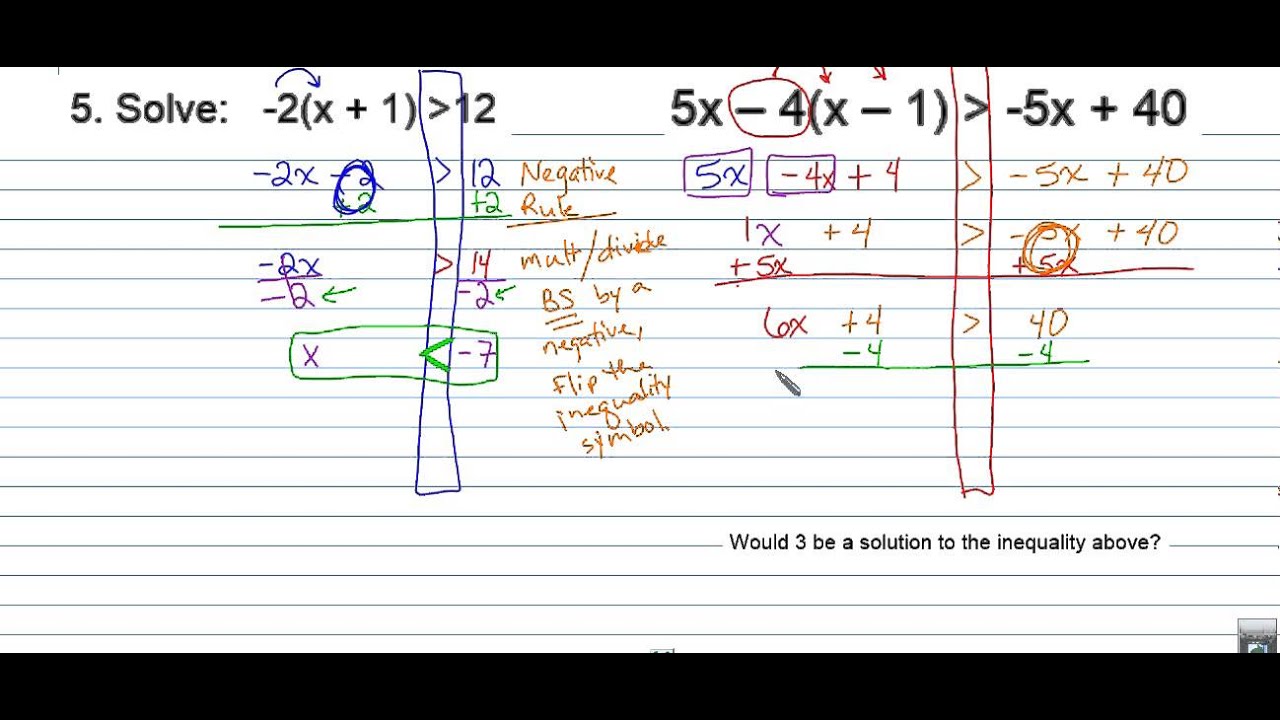 5. Solve: -2(x + 1) > 12
-2x - 2 > 12
+2 +2
-2x > 14
-2 -2
x < -7
Negative
Rule
mult/divide
BS by a
negative,
flip the
inequality
symbol.
5x – 4(x – 1) > -5x + 40
5x -4x + 4 > -5x + 40
1x + 4 > -5x + 40
+5x +5x
6x +4 > 40
-4 -4
Would 3 be a solution to the inequality above?